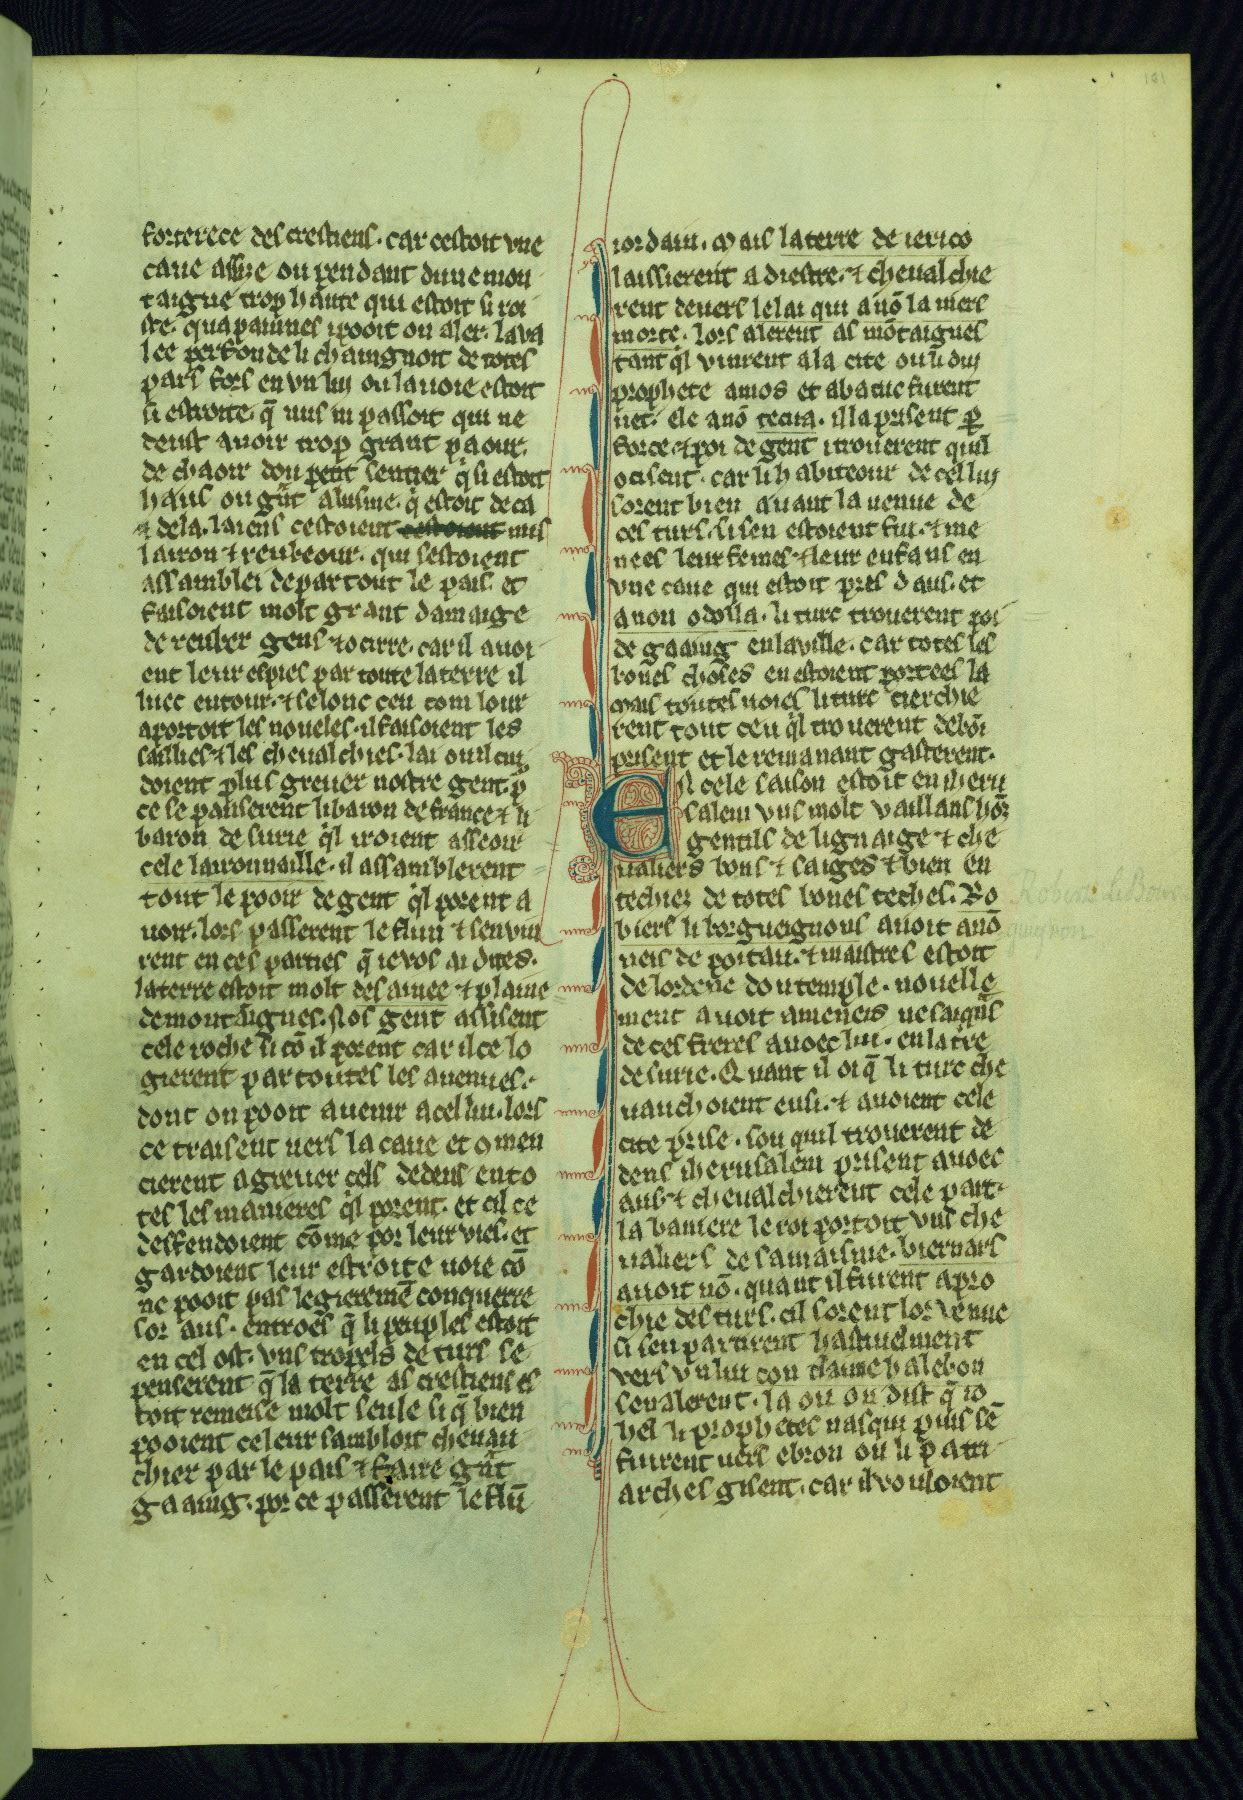 forterece des crestiens. car cestoit vne
caue assise ou pendant dune mon
taigne trop haute qui estoit si roi
ste. qua painnes ipooit on aler. la va
lee perfonde li chaingnoit de totes
pars fors en vn lui ou la uoie estoit
si estroite. q̄ nus ni passoit qui ne
deust auoir trop grant paour.
de chaoir dou petit sentier q̇ si estoit
haus ou gñt abisme. q̇ estoit de ca
⁊ dela. laiens cestoient mis
lairon ⁊ reubeour. qui sestoient
assamblei de par tout le pais. et
faisoient molt grant damaige
de reuber gens ⁊ ocirre. car il auoi
ent leur espies par toute la terre il
luec entour. ⁊ selonc ceu com lour
aportoit les noueles. il faisoient les
saillies ⁊ les cheualchies. lai ou il cui
doient plus greuer nostre gent. p̄
ce se panserent li baron de france ⁊ li
baron de surie q̇l iroient asseoir
cele laironnaille. il assamblerent
tout le pooir de gent q̇l porent a
uoir. lors passerent le flun ⁊ sen vin
rent en ces parties q̄ ie vos ai dites.
la terre estoit molt desainee ⁊ plaine
de montaignes. nos gent assisent
cele roche si cō il porent car il ce lo
gierent par toutes les auenues.
dont on pooit auenir a cel lui. lors
ce traisent uers la caue et 9men
cierent a greuer cels dedens en to
tes les manieres q̇l porent. et cil ce
deffendoient cōme por leur vies. et
gardoient leur estroite uoie cō
ne pooit pas legieremē conquerre
sor aus. entroes q̄ li peuples estoit
en cel ost. vns tropels de turs se
penserent q̄ la terre as crestiens es
toit remeise molt seule si q̄ bien
pooient ce leur sambloit cheuau
chier par le pais ⁊ faire gñt
gaaing. por ce passerent le flū
iordain. mais la terre de ierico
laissierent a diestre. ⁊ cheualchie
rent deuers le lai qui a nō la mers
morte. lors alerent as mōtaignes
tant q̇l vinrent a la cite ou li doi
prophete amos et abacuc furent
nei. ele a nō tecua. il la prisent p̱
force. ⁊ poi de gent i trouerent quil
ocisent. car li habiteour de cel lui
sorent bien auant la uenue de
ces turs. si sen estoient fui. ⁊ me
nees leur femes ⁊ leur enfans en
vne caue qui estoit pres daus. et
a non odolla. li turc trouerent poi
de gaaing en la ville. car totes les
bones choses en estoient portees la
mais toutes uoies li turc cierchie
rent tout ceu q̇l trouerent de bō i
prisent et le remanant gasterent.
En cele saison estoit en iheru
salem vns molt vaillans hōs
gentils de lignaige ⁊ che
ualiers bons ⁊ saiges ⁊ bien en
techiez de totes bones teches. Ro
biers li borgueignons auoit a nō
neis de poitau. ⁊ maistres estoit
de lordene dou temple. nouelle
ment auoit ameneis ne sai q̄ns
de ces freres auoec lui. en la t̄re
de surie. Quant il oi q̄ li turc che
uauchoient ensi. ⁊ auoient cele
cite prise. sou quil trouerent de
dens iherusalem prisent auoec
aus. ⁊ cheualchierent cele part.
la baniere le roi portoit vns che
ualiers de sa maisnie. biernars
auoit nō. quant il furent apro
chie des turs. cil sorent lor venue
si sen partirent hastiuelment
vers vn lui con claime halebon
sen alerent. la ou on dist q̄ io
hel li prophetes nasqui puis sē
fuirent uers ebron ou li patri
arches gisent. car il vouloient